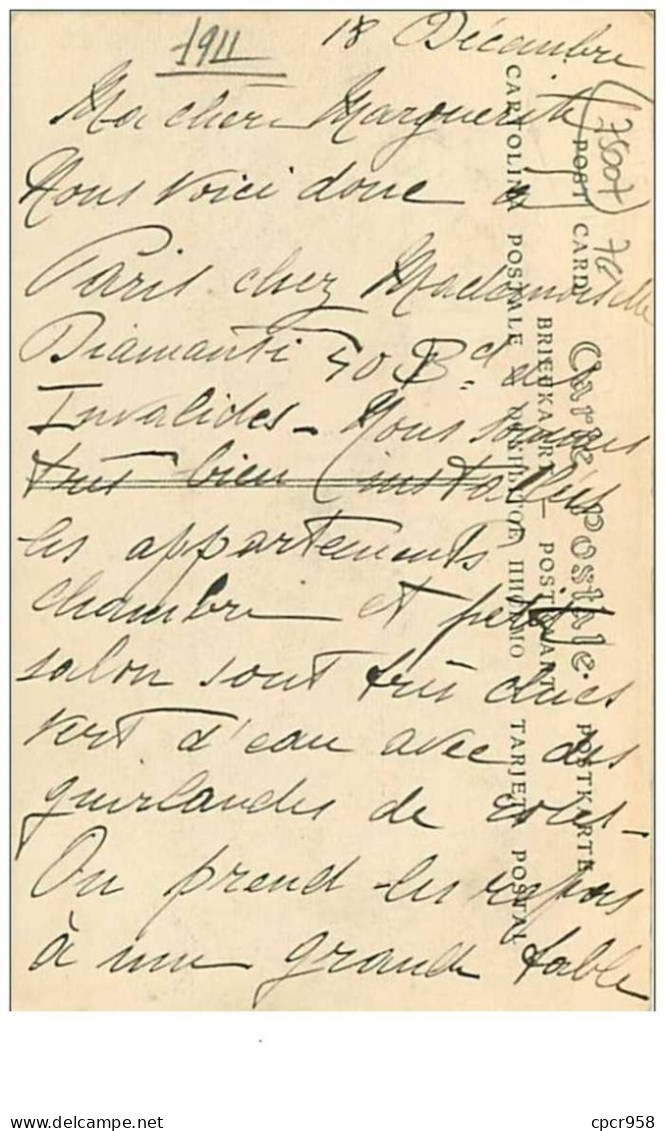 1911
18 Décembre
Ma chère Marguerite
Nous voici donc à
Paris chez Mademoiselle
Diamanti 50 Bd des
Invalides - Nous sommes
très bien installées
les appartements
chambre et petit
salon sont très chics
vert d'eau avec des
guirlandes de roses -
On prend les repas
à une grande table
75007
Carte postale.
POST CARD POSTKARTE
BRIEFKAART — POSTKWART
CARTOLINA POSTALE TARJETA POSTAL
cpcr958